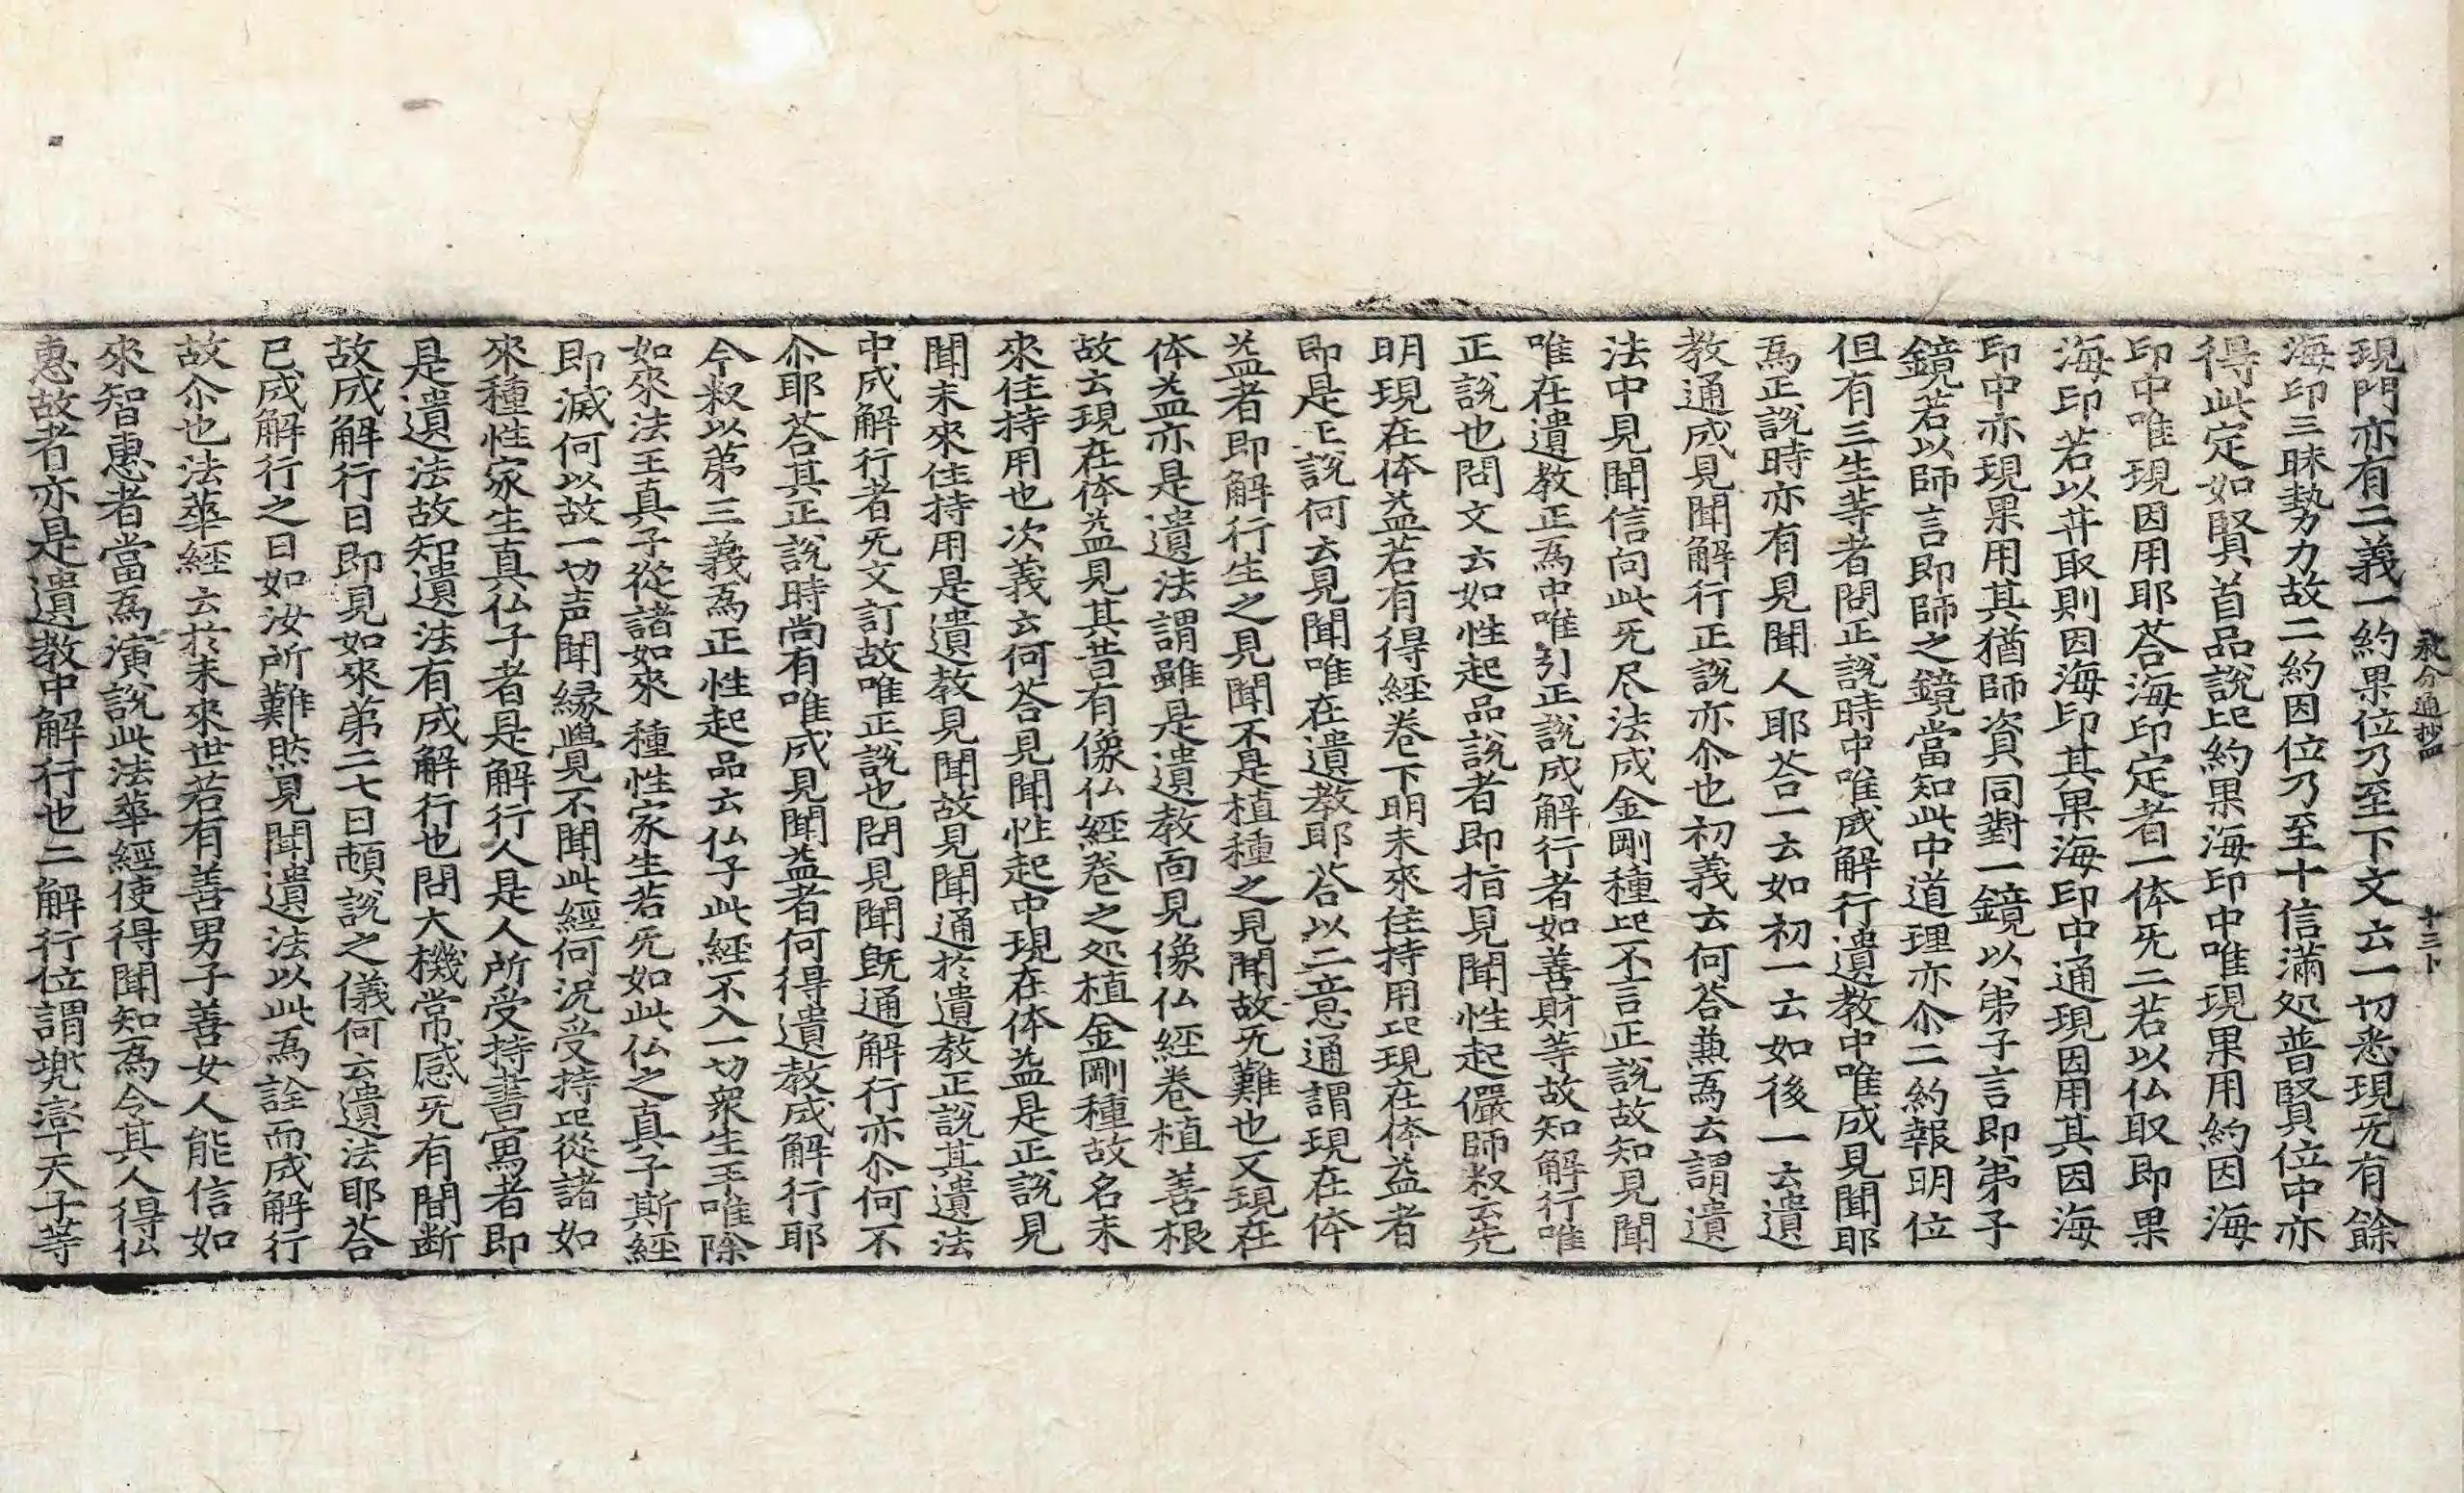 教分通抄四 十三卜
現門亦有二義一約果位乃至下文云一切悉現旡有餘
海印三昧勢力故二約因位乃至十信滿処普賢位中亦
得此定如賢首品說㠯約果海印中唯現果用約因海
印中唯現因用耶荅海印定者一体旡二若以仏取即果
海印若以井取則因海印其果海印中通現因用其因海
印中亦現果用其猶師資同對一鏡以弟子言即弟子
鏡若以師言即師之鏡當知此中道理亦尒二約報明位
但有三生等者問正說時中唯成解行遺教中唯成見聞耶
為正說時亦有見聞人耶荅一云如初一云如後一云遺
教通成見聞解行正說亦尒也初義云何荅䓆為云謂遺
法中見聞信向此旡尽法成金剛種㠯不言正說故知見聞
唯在遺教正為中唯引正說成解行者如善財等故知解行唯
正說也問文云如性起品說者即指見聞性起儼師叙云先
明現在体益若有得經卷下明未來住持用㠯現在体益者
即是正說何云見聞唯在遺教耶荅以二意通謂現在体
益者即解行生之見聞不是植種之見聞故旡難也又現在
体益亦是遺法謂雖是遺教而見像仏經卷植善根
故云現在体益見其昔有像仏經卷之処植金剛種故名未
來住持用也次義云何荅見聞性起中現在体益是正說見
聞未來住持用是遺教見聞故見聞通於遺教正說其遺法
中成解行者旡文訂故唯正說也問見聞旣通解行亦尒何不
尒耶荅其正說時尚有唯成見聞益者何得遺教成解行耶
今叙以第三義為正性起品云仏子此經不入一切衆生手唯除
如來法王真子從諸如來種性家生若旡如此仏之真子斯經
即滅何以故一切声聞縁覺不聞此經何況受持㠯從諸如
來種性家生真仏子者是解行人是人所受持書寫者即
是遺法故知遺法有成解行也問大機常感旡有間断
故成解行日即見如來第二七日頓說之儀何云遺法耶荅
已成解行之日如汝所難然見聞遺法以此為詮而成解行
故尒也法華經云於未來世若有善男子善女人能信如
來智惠者當為演說此法華經使得聞知為令其人得仏
惠故者亦是遺教中解行也二解行位謂兠率天子等